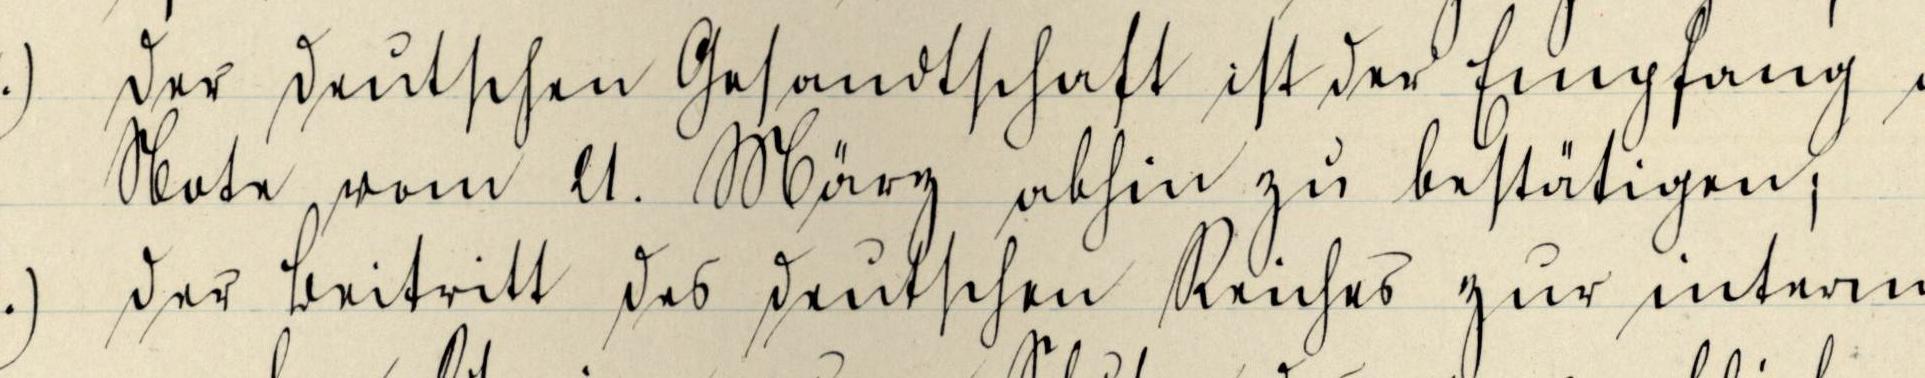 .) der deutschen Gesandtschaft ist der Empfang
Note vom 21. März abhin zu bestätigen;
.) der Beitritt des deutschen Reiches zur intern